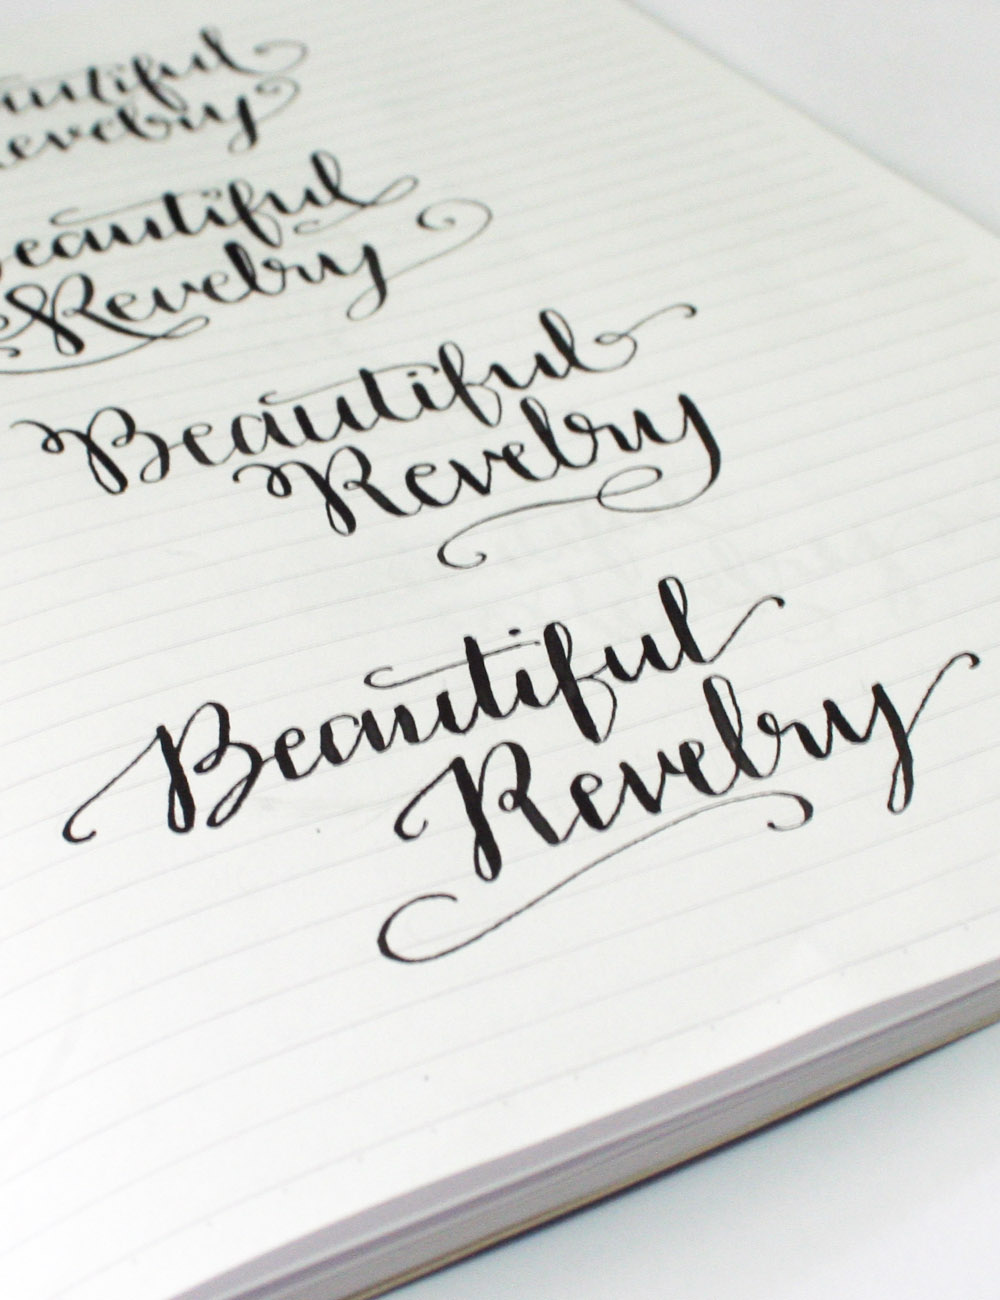 Beautiful
Revelry
Beautiful
Revelry
Beautiful
Revelry
Beautiful
Revelry